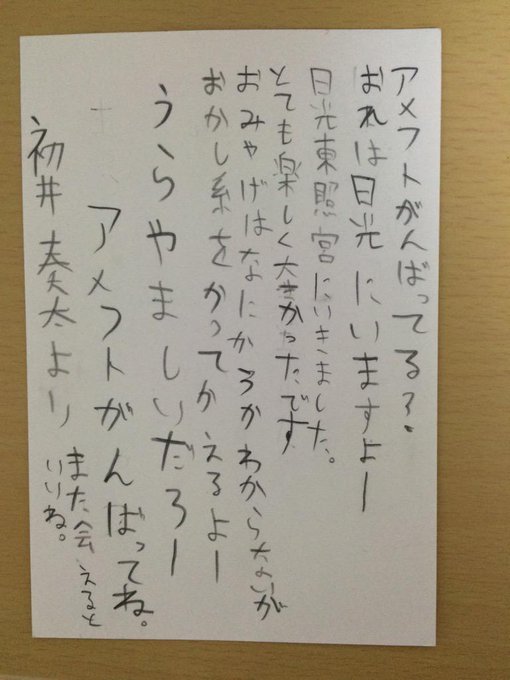 アメフトがんばってる?
おれは日光にいますよー
日光東照宮にいきました。
とても楽しく大きかったです
おみやげはなにかうかわからないが
おかし系をかってかえるよー
うらやましいだろー
アメフトがんばってね。
初井奏太より
また会えると
いいね。